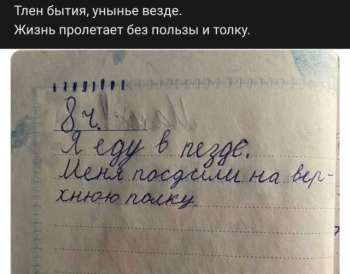 Тлен бытия, унынье везде.
Жизнь пролетает без пользы и толку.
8 ч.
Я еду в пезде.
Меня на вер-
хнюю полку